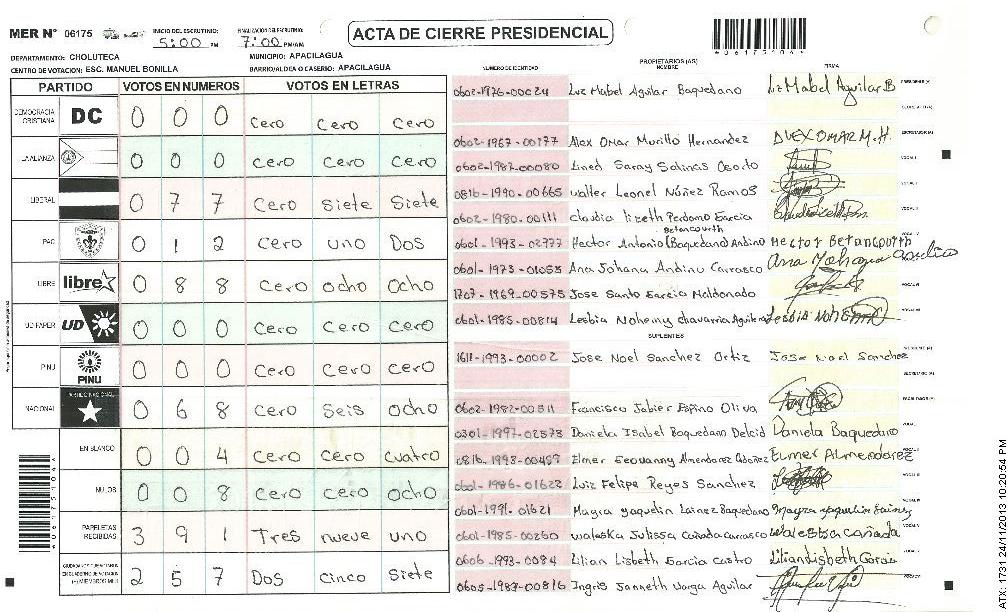 MER N° 06175
INICIO DEL ESCRUTINIO: 5:00 PM
FINALIZACION DEL ESCRUTINIO: 7:00 PM/AM
ACTA DE CIERRE PRESIDENCIAL
DEPARTAMENTO: CHOLUTECA MUNICIPIO: APACILAGUA
CENTRO DE VOTACION: ESC. MANUEL BONILLA BARRIO/ALDEA O CASERIO: APACILAGUA
PARTIDO VOTOS EN NUMEROS VOTOS EN LETRAS
DEMOCRACIA CRISTIANA DC 0 0 0 cero cero cero
LA ALIANZA 0 0 0 cero cero cero
LIBERAL 0 7 7 cero siete siete
PAC 0 1 2 cero uno Dos
LIBRE libre 0 8 8 cero ocho ocho
UD FAPER UD 0 0 0 cero cero cero
PINU PINU 0 0 0 cero cero cero
NACIONAL 0 6 8 cero seis ocho
EN BLANCO 0 0 4 cero cero cuatro
NULOS 0 0 8 cero cero ocho
PAPELETAS RECIBIDAS 3 9 1 Tres nueve uno
2 5 7 Dos cinco siete
NUMERO DE IDENTIDAD PROPIETARIOS (AS) NOMBRE FIRMA
0602-1976-00024 Luz Mabel Aguilar Baquedano Luz Mabel Aguilar B
0602-1967-00177 Alex Omar Murillo Hernandez ALEX OMAR M.H.
0602-1987-00080 Lined Saray Salinas Osorto
0816-1990-00665 Walter Leonel Núñez Ramos
0602-1980-00111 claudia lizeth Perdomo Garcia
Betancourth
0601-1993-02777 Hector Antonio (Baquedano) Andino Hector Betancourth
0601-1973-01055 Ana Johana Andino Carrasco
1707-1969-00575 Jose Santo Garcia Maldonado
0601-1985-00814 Lesbia Nohemy chavarria Aguilera
SUPLENTES
1611-1993-00002 Jose Noel Sanchez Ortiz Jose Noel Sanchez
0602-1982-00311 Francisco Jabier Espino Oliva
0301-1997-02578 Daniela Isabel Baquedano Delcid Daniela Baquedano
0816-1993-00457 Elmer Geovanny Almendarez Elmer Almendarez
0601-1986-01622 Luiz Felipe Reyes Sanchez
0601-1991-01621 Mayra yaquelin Lainez Baquedano
0601-1985-00260 waleska Julissa Cañada Carrasco
0606-1993-0084 Lilian Lisbeth Garcia Castro Lilian Lisbeth Garcia
0605-1987-00816 Ingris Janneth Varga Aguilar
ATX: 1731 24/11/2013 10:20:54 PM